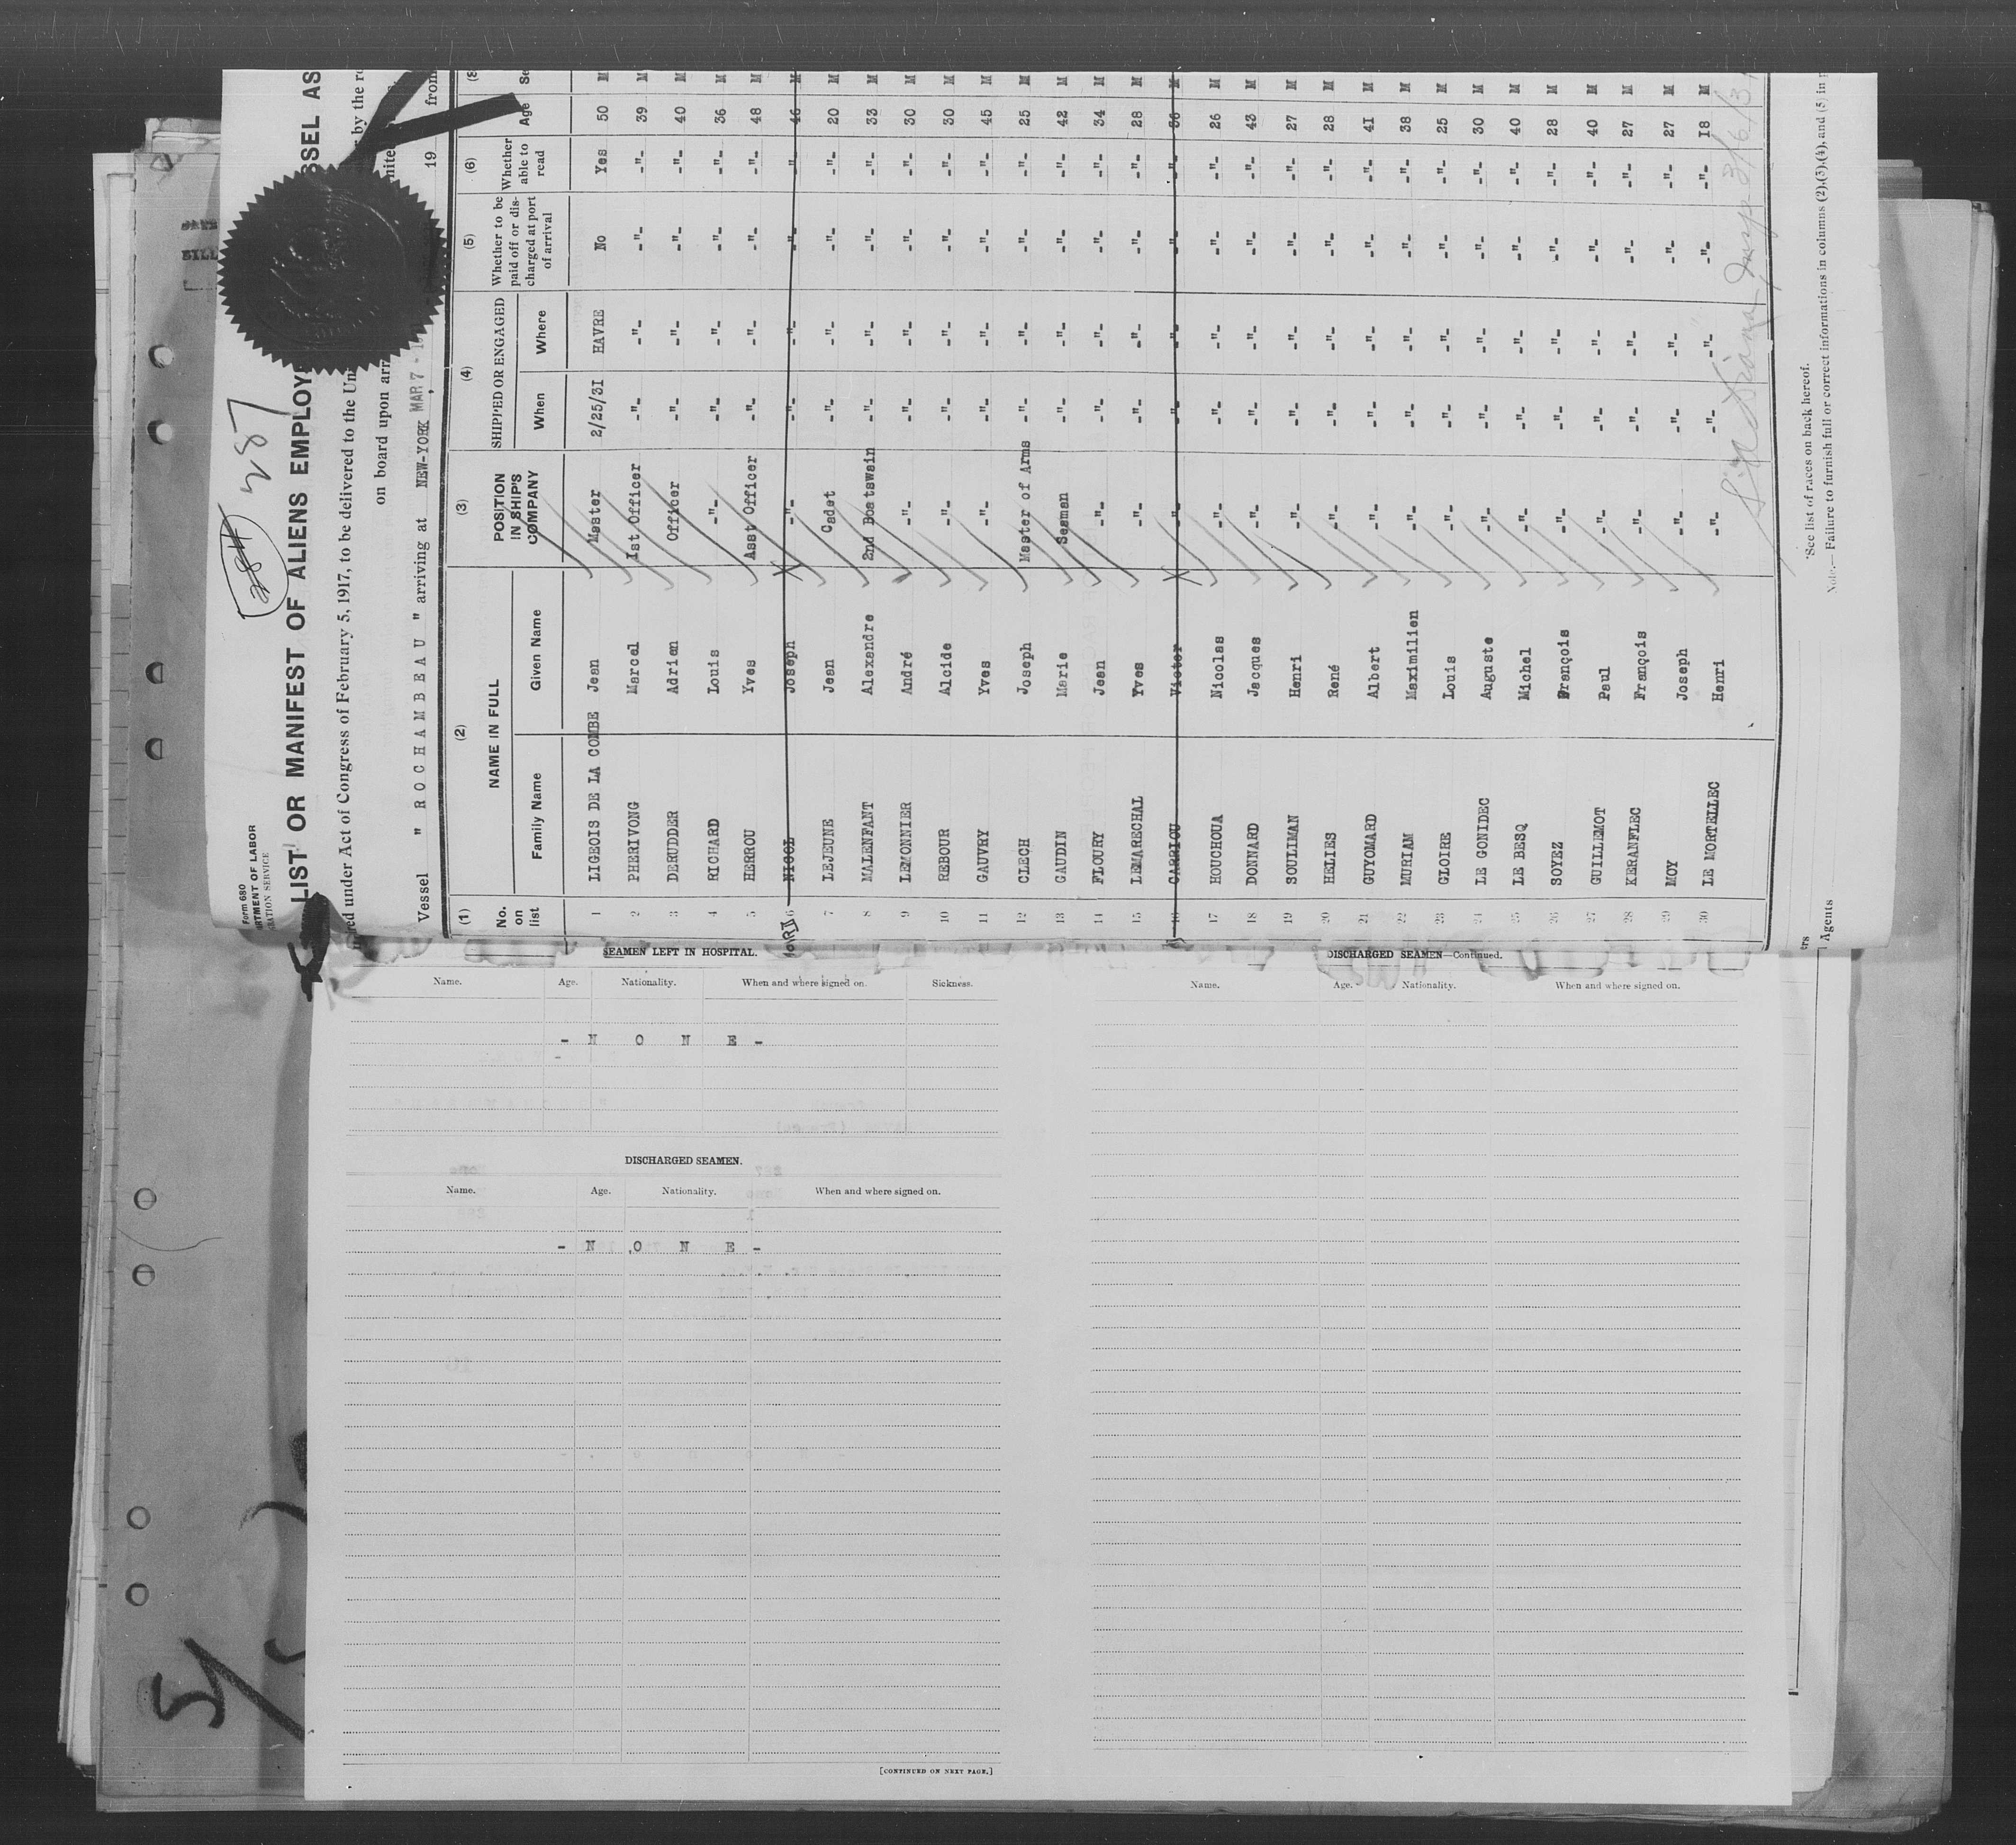 Form 680
RTMENT OF LABOR
RATION SERVICE
284 287
LIST OR MANIFEST OF ALIENS EMPLOY SSEL AS
red under Act of Congress of February 5, 1917, to be delivered to the Un by the r
on board upon arr
Vessel " ROCHAMBEAU " arriving at NEW-YORK MAR 7 - 19 from
(1) (2) (3) (4) (5) (6)
No. on list NAME IN FULL POSITION IN SHIP'S COMPANY SHIPPED OR ENGAGED Whether to be paid off or discharged at port of arrival Whether able to read Age Se
Family Name Given Name When Where
1 LIGEOIS DE LA COMBE Jean Master 2/25/31 HAVRE No Yes 50 M
2 PHERIVONG Marcel 1st Officer -"- -"- -"- -"- 39 M
3 DERUDDER Adrien Officer -"- -"- -"- -"- 40 M
4 RICHARD Louis -"- -"- -"- -"- -"- 36 M
5 HERROU Yves Asst Officer -"- -"- -"- -"- 48 M
6 NICOL Joseph -"- -"- -"- -"- -"- 46 M
7 LEJEUNE Jean Cadet -"- -"- -"- -"- 20 M
8 MALENFANT Alexandre 2nd Boatswain -"- -"- -"- -"- 33 M
9 LEMONNIER André -"- -"- -"- -"- -"- 30 M
10 REBOUR Alcide -"- -"- -"- -"- -"- 30 M
11 GAUVRY Yves -"- -"- -"- -"- -"- 45 M
12 CLECH Joseph Master of Arms -"- -"- -"- -"- 25 M
13 GAUDIN Marie Seaman -"- -"- -"- -"- 42 M
14 FLOURY Jean -"- -"- -"- -"- -"- 34 M
15 LEMARECHAL Yves -"- -"- -"- -"- -"- 28 M
16 CARRIOU Victor -"- -"- -"- -"- -"- 36 M
17 HOUCHOUA Nicolas -"- -"- -"- -"- -"- 26 M
18 DONNARD Jacques -"- -"- -"- -"- -"- 43 M
19 SOULIMAN Henri -"- -"- -"- -"- -"- 27 M
20 HELIES René -"- -"- -"- -"- -"- 28 M
21 GUYOMARD Albert -"- -"- -"- -"- -"- 41 M
22 MURIAM Maximilien -"- -"- -"- -"- -"- 38 M
23 GLOIRE Louis -"- -"- -"- -"- -"- 25 M
24 LE GONIDEC Auguste -"- -"- -"- -"- -"- 30 M
25 LE BESQ Michel -"- -"- -"- -"- -"- 40 M
26 SOYEZ François -"- -"- -"- -"- -"- 28 M
27 GUILLEMOT Paul -"- -"- -"- -"- -"- 40 M
28 KERANFLEC François -"- -"- -"- -"- -"- 27 M
29 MOY Joseph -"- -"- -"- -"- -"- 27 M
30 LE MORTELLEC Henri -"- -"- -"- -"- -"- 18 M
3/6/31
*See list of races on back hereof.
Note.—Failure to furnish full or correct informations in columns (2),(3),(4), and (5) in
Agents
SEAMEN LEFT IN HOSPITAL.
Name. Age. Nationality. When and where signed on. Sickness.
- N O N E -
DISCHARGED SEAMEN.
Name. Age. Nationality. When and where signed on.
- N O N E -
[CONTINUED ON NEXT PAGE.]
DISCHARGED SEAMEN—Continued.
Name. Age. Nationality. When and where signed on.